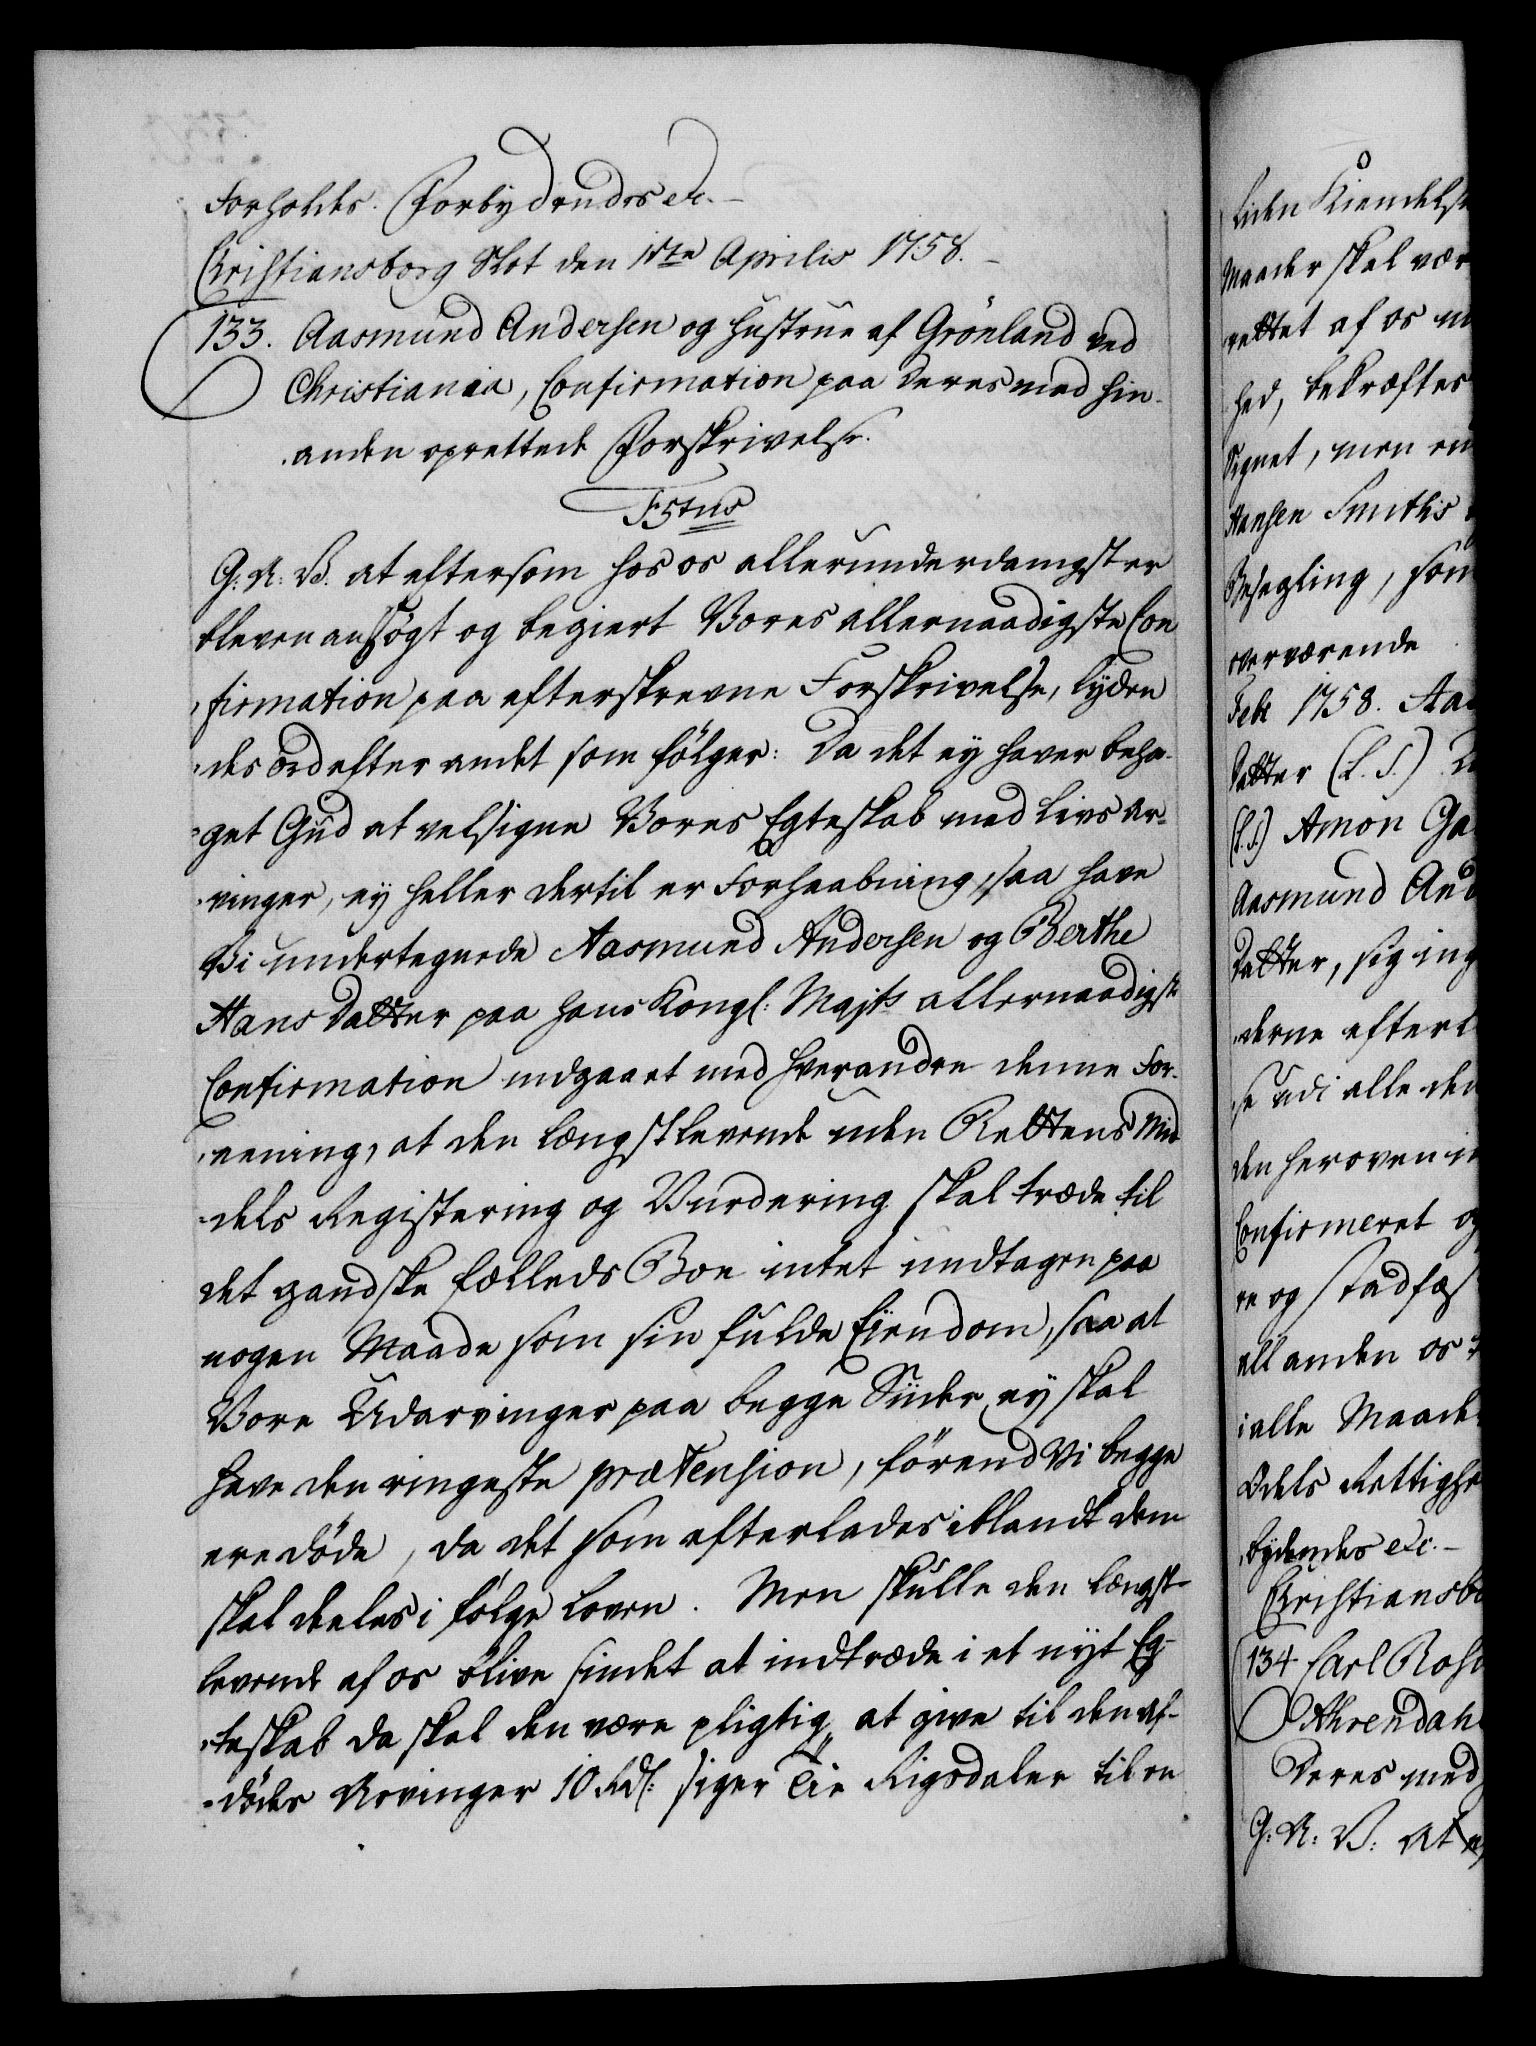 Forholdes. Forbydendes etc. –
Christiansborg Slot den 15te Aprilis 1758. –
133. Aasmund Andersen og Hustrue af Grönland ved
Christiania, Confirmation paa deres med hin-
anden oprettede Forskrivelse.
F5tus
G: A: V: at eftersom hos os allerunderdanigst er
bleven ansögt og begiert Vores allernaadigste Con
firmation paa efterskrevne Forskrivelse, lyden
des Ord efter andet som fölger: Da det ey haver beha-
get Gud at velsigne Vores Egteskab med Livs Ar-
vinger, ey heller dertil er Forhaabning, saa have
Vi undertegnede Aasmund Andersen og Berthe
Hans Datter paa Hans Kongl: Majts allernaadigste
Confirmation indgaaet med hverandre denne For-
eening, at den længstlevende uden Rettens Mid
dels Registering og Vurdering skal træde til
det gandske Fælleds Boe intet undtagen paa
nogen Maade som sin fulde Eiendom, saa at
Vore Udarvinger paa begge Siider ey skal
have den ringeste prætension, förend Vi begge
ere döde, da det som efterlades iblandt dem
skal deeles i fölge Loven. Men skulle den længst-
levende af os blive sindet at indtræde i et nyt Eg-
teskab da skal den være pligtig at give til den af-
dödes Arvinger 10 Rdl: siger Tie Rigsdaler til en
liden Kiendelse
Maader skal vær
rettet af os m
hed, bekræftes
Signet, men en
Hansen Smiths
Besegling, som
overværende
Febr 1758. Aas
Datter (L. S.)
(L.S.) Amon Ga
Aasmund And
Datter, sig ing
derne efterl
se udi alle den
den heroven in
Confirmeret og
re og stadfæs
all anden os
i alle Maader
Odels Rettighe
bydendes etc. –
Christiansbo
134. Carl Rosi
Ahrendahl
Deres med
G: A: V: at e